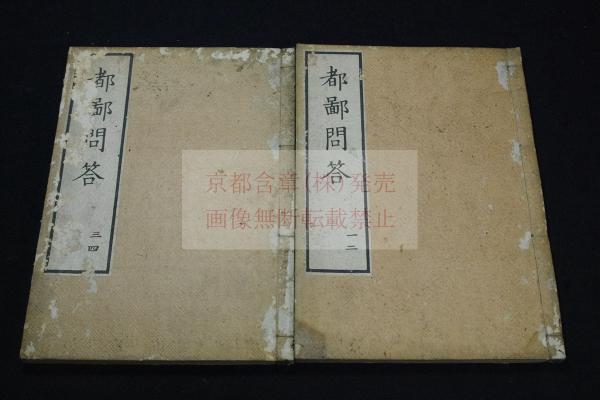 都鄙問答
一二
都鄙問答
三四
京都含章(株)発売
画像無断転載禁止